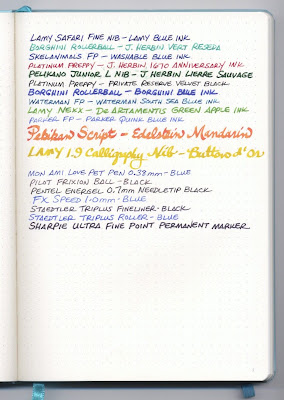 LAMY SAFARI FINE NIB - LAMY BLUE INK
BORGHINI ROLLERBALL - J. HERBIN VERT RESEDA
SKELANIMALS FP - WASHABLE BLUE INK
PLATINUM PREPPY - J. HERBIN 1670 ANNIVERSARY INK
PELIKANO JUNIOR L NIB - J HERBIN LIERRE SAUVAGE
PLATINUM PREPPY - PRIVATE RESERVE VELVET BLACK
BORGHINI ROLLERBALL - BORGHINI BLUE INK
WATERMAN FP - WATERMAN SOUTH SEA BLUE INK
LAMY NEXX - DE ATRAMENTIS GREEN APPLE INK
PARKER FP - PARKER QUINK BLUE INK
Pelikano Script - Edelstein Mandarin
LAMY 1.9 Calligraphy Nib - Bouton d'Or
MON AMI LOVE PET PEN 0.38mm - BLUE
PILOT FRIXION BALL - BLACK
PENTEL ENERGEL 0.7mm NEEDLETIP BLACK
FX SPEED 1.0mm - BLUE
STAEDTLER TRIPLUS FINELINER - BLACK
STAEDTLER TRIPLUS ROLLER - BLUE
SHARPIE ULTRA FINE POINT PERMANENT MARKER